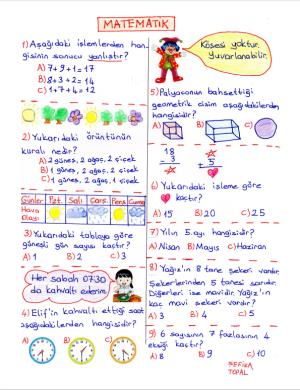 MATEMATİK
1) Aşağıdaki işlemlerden han-
gisinin sonucu yanlıştır?
A) 7+9+1=17
B) 8+3+2=14
C) 1+7+4=12
2) Yukarıdaki örüntünün
kuralı nedir?
A) 2 güneş, 2 ağaç, 2 çiçek
B) 1 güneş, 2 ağaç, 2 çiçek
C) 1 güneş, 1 ağaç, 2 çiçek
Günler Pzt. Salı Çarş. Perş. Cuma
Hava
Olayı
3) Yukarıdaki tabloya göre
güneşli gün sayısı kaçtır?
A) 1 B) 2 C) 3
Her sabah 07:30
da kahvaltı ederim.
4) Elif'in kahvaltı ettiği saat
aşağıdakilerden hangisidir?
A) B) C)
Köşesi yoktur.
Yuvarlanabilir.
5) Palyaçonun bahsettiği
geometrik cisim aşağıdakilerden
hangisidir?
A) B) C)
18
- 3
+ 5
6) Yukarıdaki işleme göre
kaçtır?
A) 15 B) 20 C) 25
7) Yılın 5. ayı hangisidir?
A) Nisan B) Mayıs C) Haziran
8) Yağız'ın 8 tane şekeri vardır.
Şekerlerinden 5 tanesi sarıdır.
Diğerleri ise mavidir. Yağız'ın
kaç mavi şekeri vardır?
A) 3 B) 4 C) 5
9) 6 sayısının 7 fazlasının 4
etkiği kaçtır?
A) 8 B) 9 C) 10
SEFİKA
TOPAL